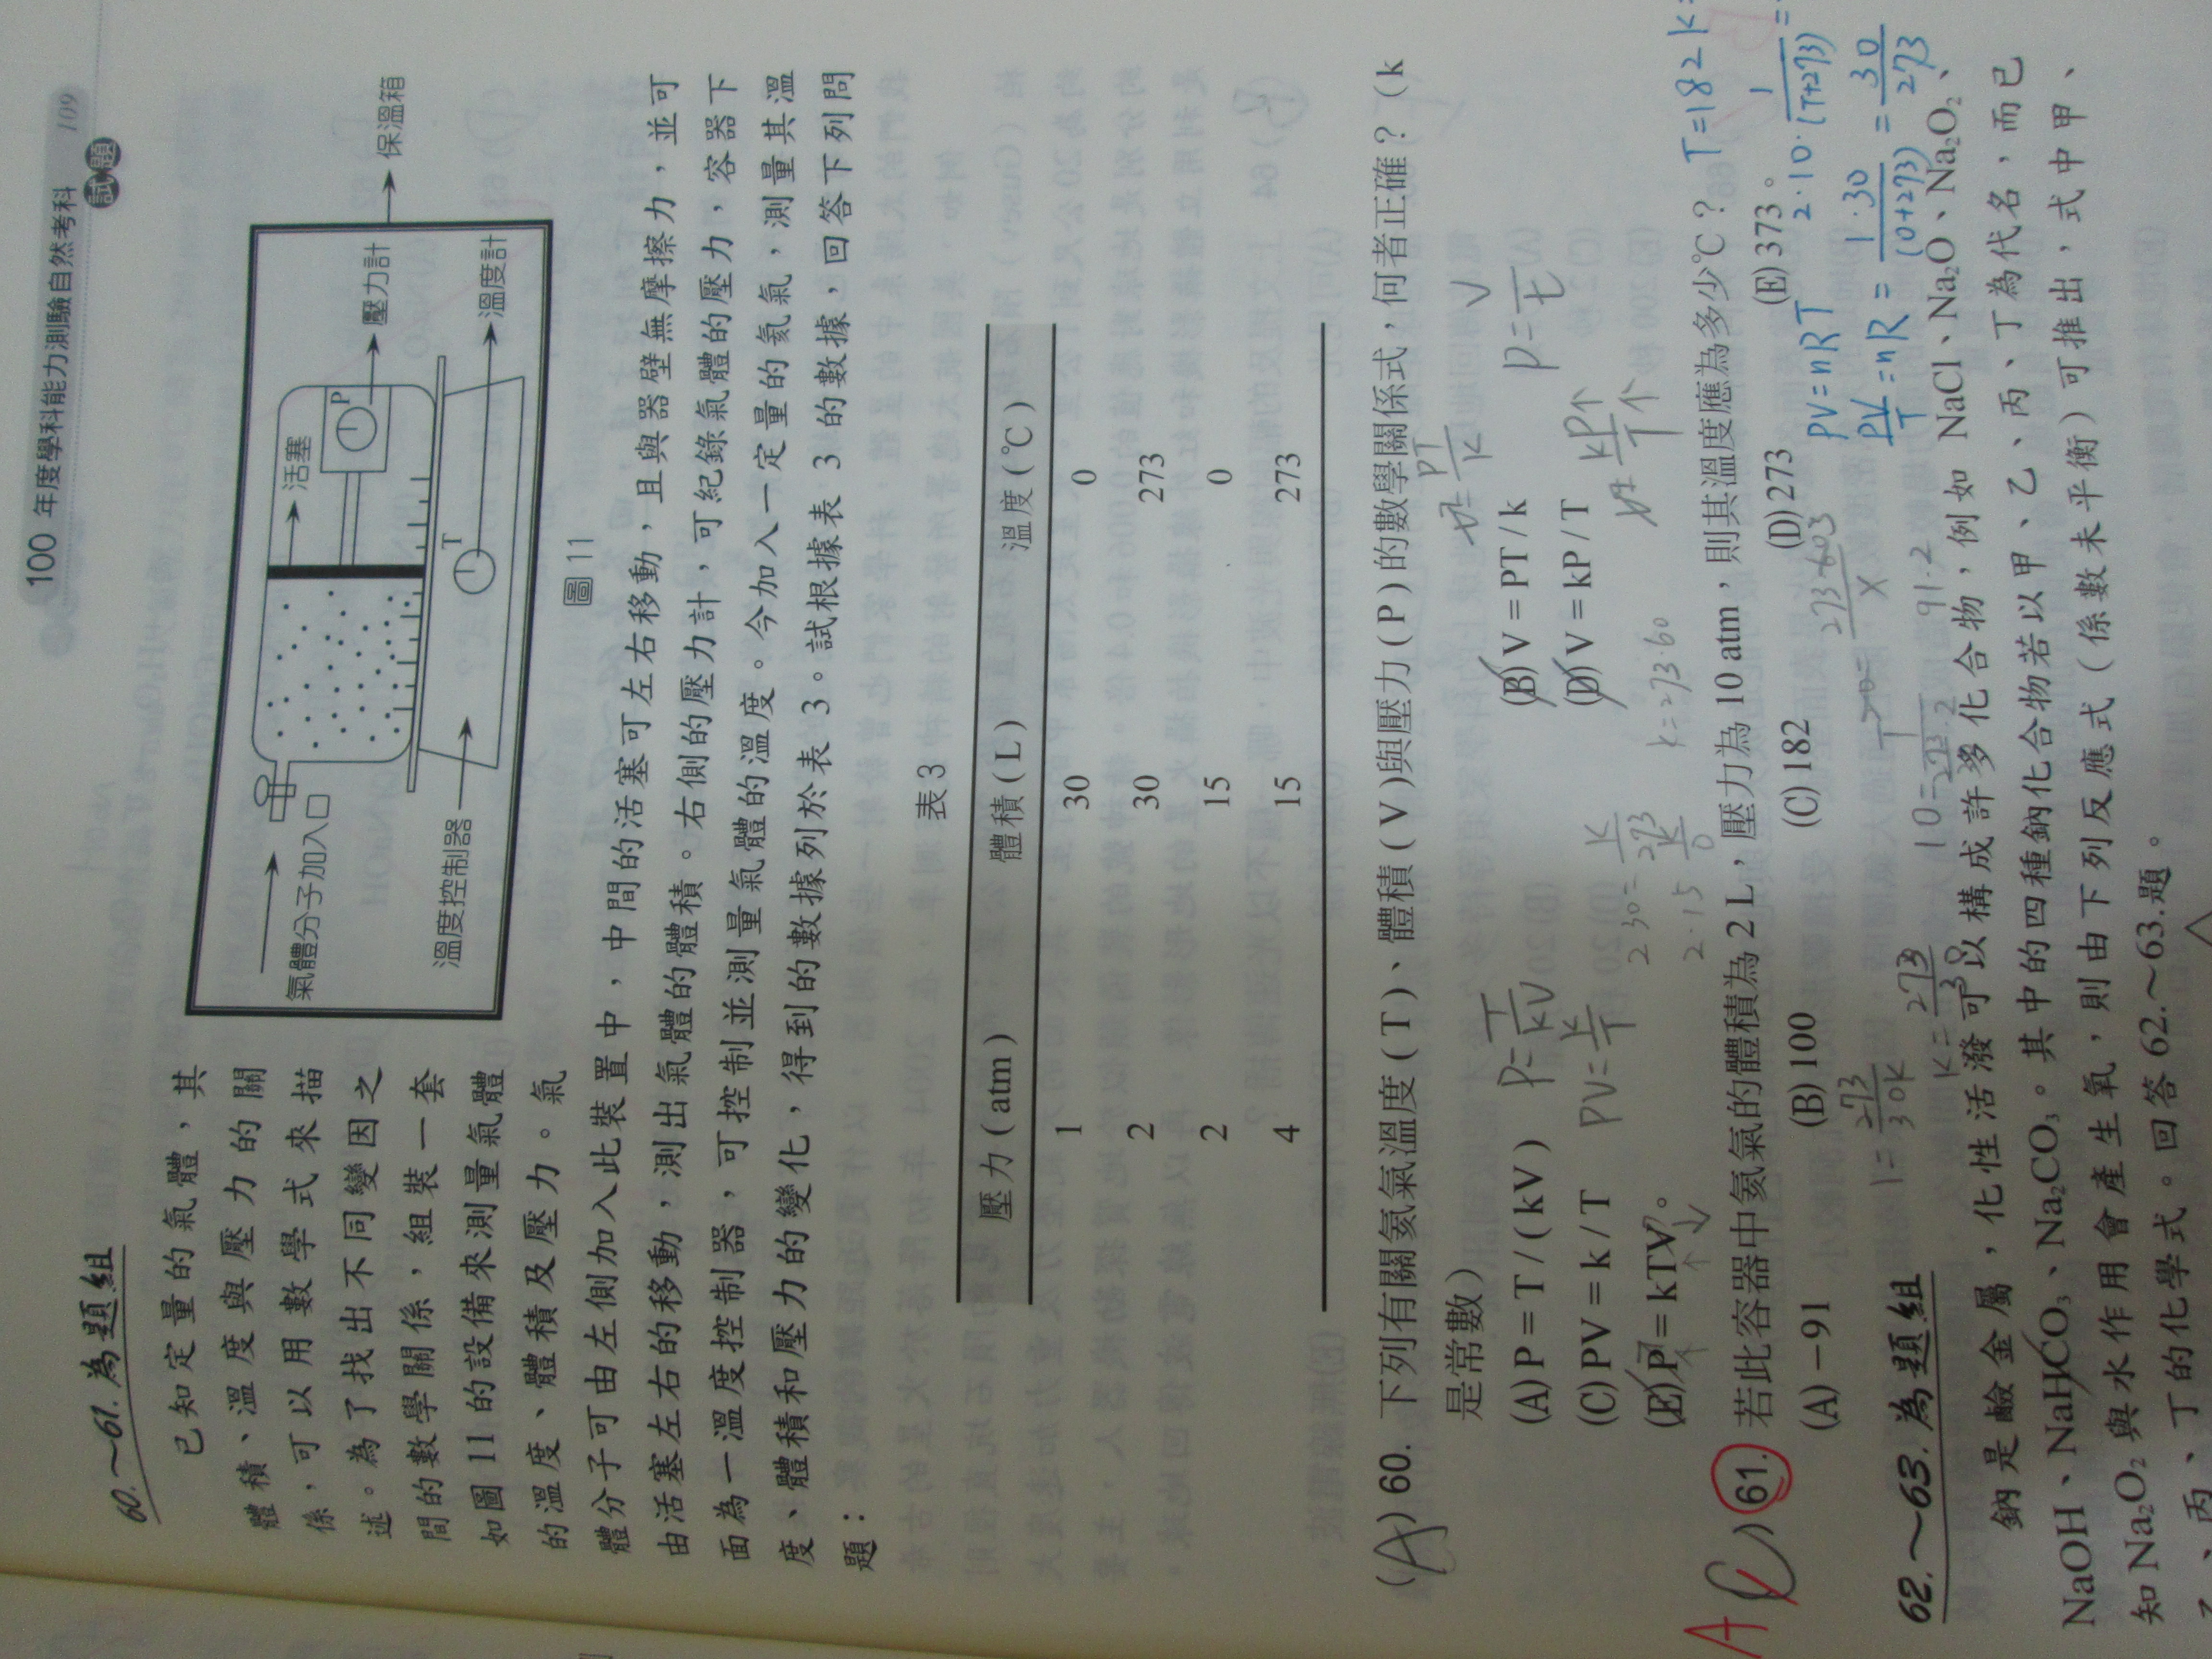 100 年度學科能力測驗自然考科 109
試題
60.～61.為題組
已知定量的氣體，其
體積、溫度與壓力的關
係，可以用數學式來描
述。為了找出不同變因之
間的數學關係，組裝一套
如圖 11 的設備來測量氣體
的溫度、體積及壓力。氣
氣體分子加入口
活塞
P
壓力計
保溫箱
T
溫度計
溫度控制器
圖 11
體分子可由左側加入此裝置中，中間的活塞可左右移動，且與器壁無摩擦力，並可
由活塞左右的移動，測出氣體的體積。右側的壓力計，可紀錄氣體的壓力，容器下
面為一溫度控制器，可控制並測量氣體的溫度。今加入一定量的氦氣，測量其溫
度、體積和壓力的變化，得到的數據列於表 3。試根據表 3 的數據，回答下列問
題：
表 3
壓力(atm) 體積(L) 溫度(℃)
1 30 0
2 30 273
2 15 0
4 15 273
(A) 60. 下列有關氦氣溫度(T)、體積(V)與壓力(P)的數學關係式，何者正確？(k
是常數)
(A) P = T / (kV) (B) V = PT / k
(C) PV = k / T (D) V = kP / T
(E) P = kTV。
P = T/kV
PV = K/T
V = PT/K
V = kP↑/T↑
P = 1/t
√
k = 273·60
A (C) 61. 若此容器中氦氣的體積為 2 L，壓力為 10 atm，則其溫度應為多少℃？
T=182 K
(A) −91 (B) 100 (C) 182 (D) 273 (E) 373。
PV = nRT
2·10·1/(T+273) =
PV/T = nR = 1·30/(0+273) = 30/273
1 = 273/30K
K = 273/30
91·2
62.～63.為題組
鈉是鹼金屬，化性活潑可以構成許多化合物，例如 NaCl、Na₂O、Na₂O₂、
NaOH、NaHCO₃、Na₂CO₃。其中的四種鈉化合物若以甲、乙、丙、丁為代名，而已
知 Na₂O₂ 與水作用會產生氧，則由下列反應式（係數未平衡）可推出，式中甲、
乙、丙、丁的化學式。回答 62.～63.題。